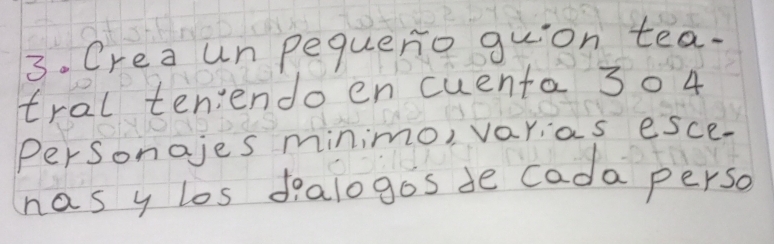 3. Crea un pequeño guion tea-
tral teniendo en cuenta 3 o 4
Personajes minimo, varias esce-
nas y los dialogos de cada perso